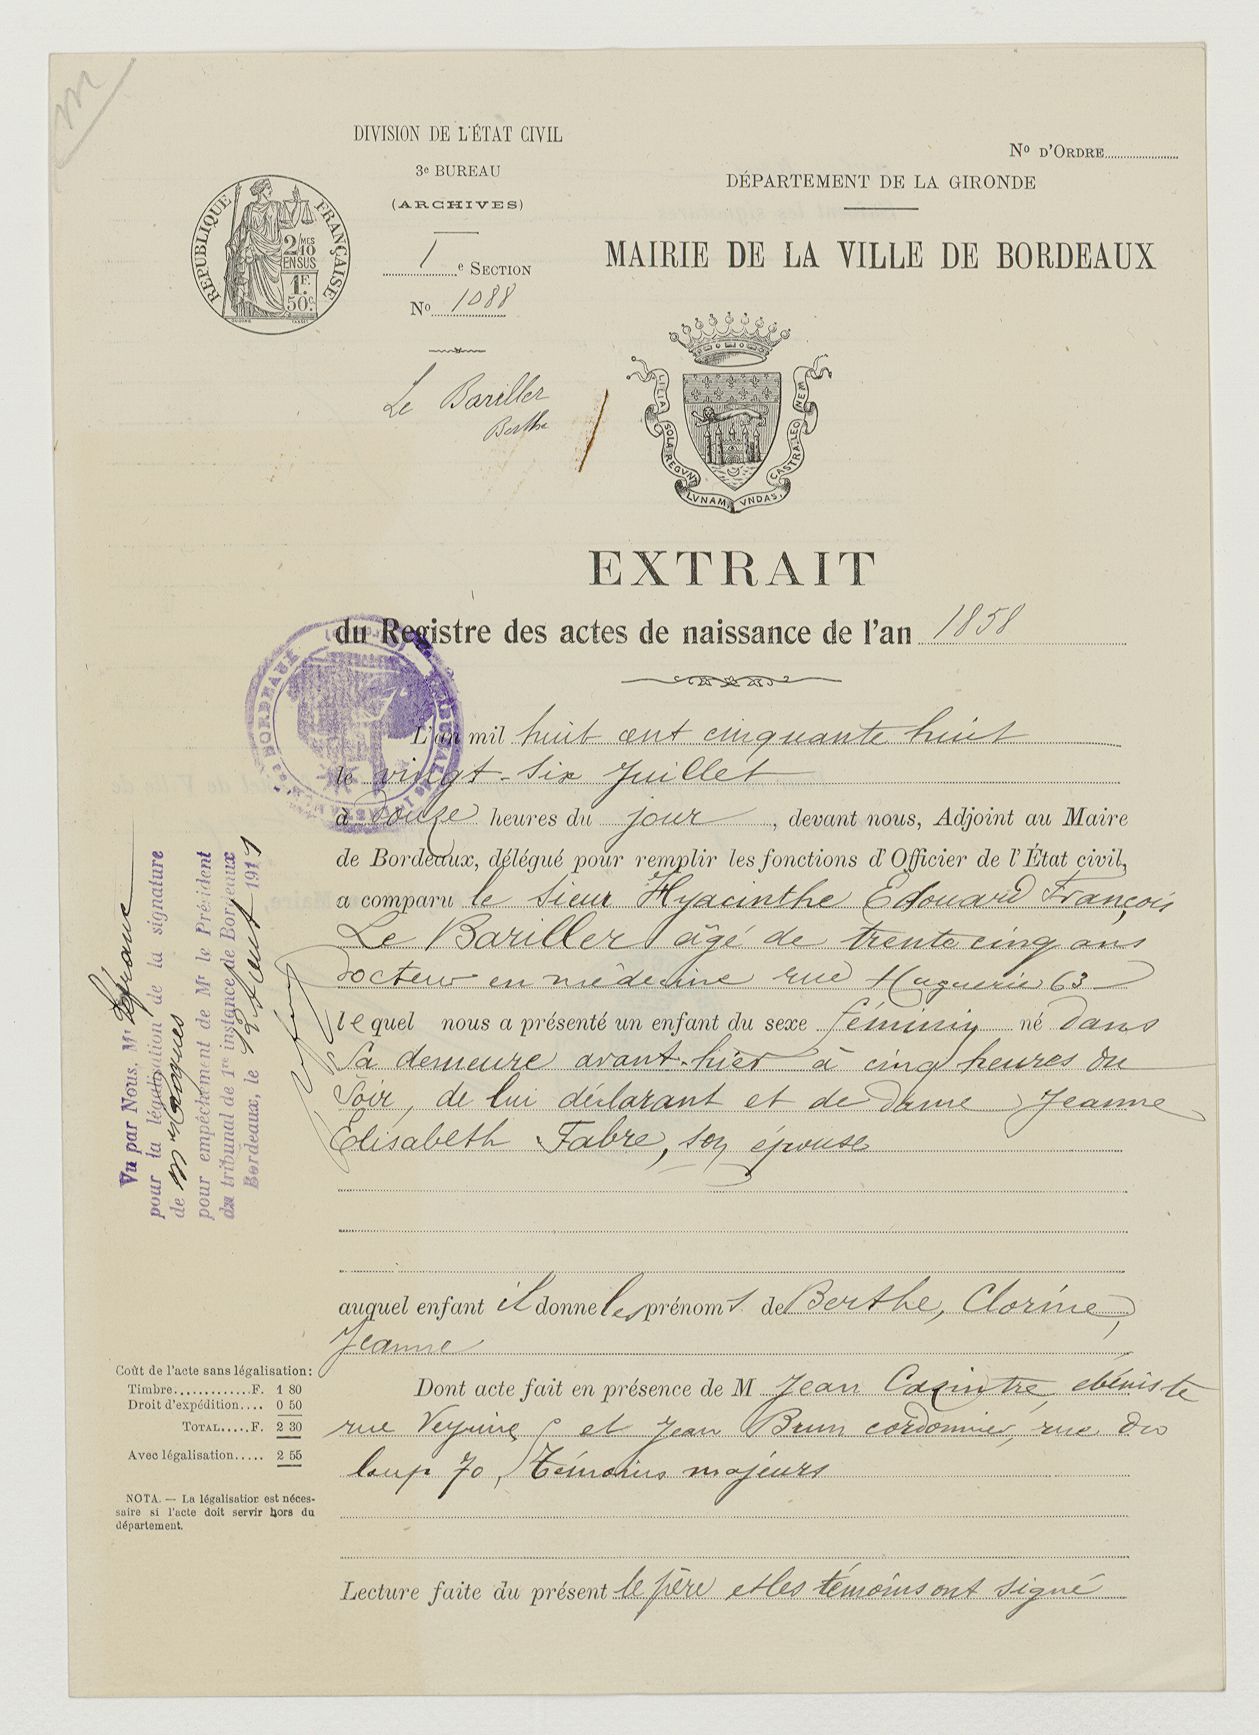 m
DIVISION DE L'ÉTAT CIVIL
3e BUREAU
(ARCHIVES)
1 e SECTION
No 1088
Le Bariller
Berthe
RÉPUBLIQUE FRANÇAISE
2/MES
10
EN SUS
1F.
50c.
No D'ORDRE
DÉPARTEMENT DE LA GIRONDE
MAIRIE DE LA VILLE DE BORDEAUX
LILIA SOLA REGVNT LVNAM VNDAS CASTRA LEO NEM
EXTRAIT
du Registre des actes de naissance de l'an 1858
L'an mil huit cent cinquante huit
le vingt-six Juillet
à douze heures du jour, devant nous, Adjoint au Maire
de Bordeaux, délégué pour remplir les fonctions d'Officier de l'État civil,
a comparu le sieur Hyacinthe Edouard François
Le Bariller âgé de trente cinq ans
docteur en médecine rue Huguerie 63
lequel nous a présenté un enfant du sexe féminin né dans
sa demeure avant-hier à cinq heures du
soir, de lui déclarant et de dame Jeanne
Elisabeth Fabre, son épouse
auquel enfant il donne les prénoms de Berthe, Clorine,
Jeanne
Dont acte fait en présence de M Jean Casintre, ébéniste
rue et Jean Brun cordonnier, rue du
loup 70, témoins majeurs
Lecture faite du présent le père et les témoins ont signé
Vu par Nous, Mr
pour la légalisation de la signature
de m
pour empêchement de Mr le Président
du tribunal de 1re instance de Bordeaux
Bordeaux, le 12 Aout 1911
BORDEAUX
Coût de l'acte sans légalisation:
Timbre............F. 1 80
Droit d'expédition.... 0 50
TOTAL.....F. 2 30
Avec légalisation..... 2 55
NOTA. — La légalisation est néces-
saire si l'acte doit servir hors du
département.